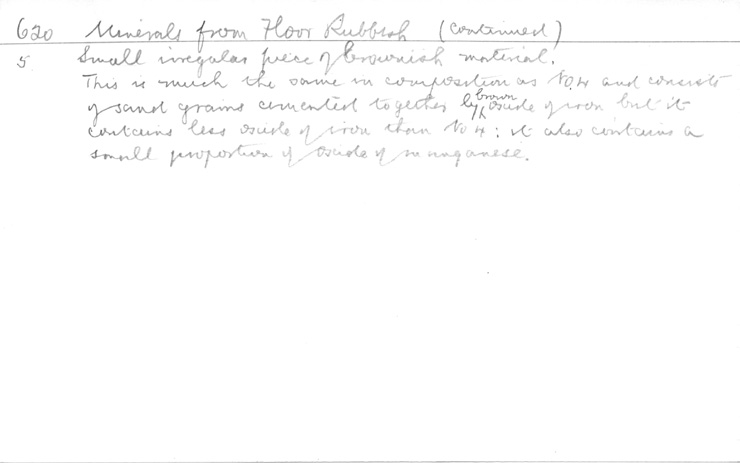 620 Minerals from Floor Rubbish (continued)
5. Small irregular piece of brownish material.
This is much the same in composition as No. 4 and consists
of sand grains cemented together by brown oxide of iron but it
contains less oxide of iron than No 4; it also contains a
small proportion of oxide of manganese.